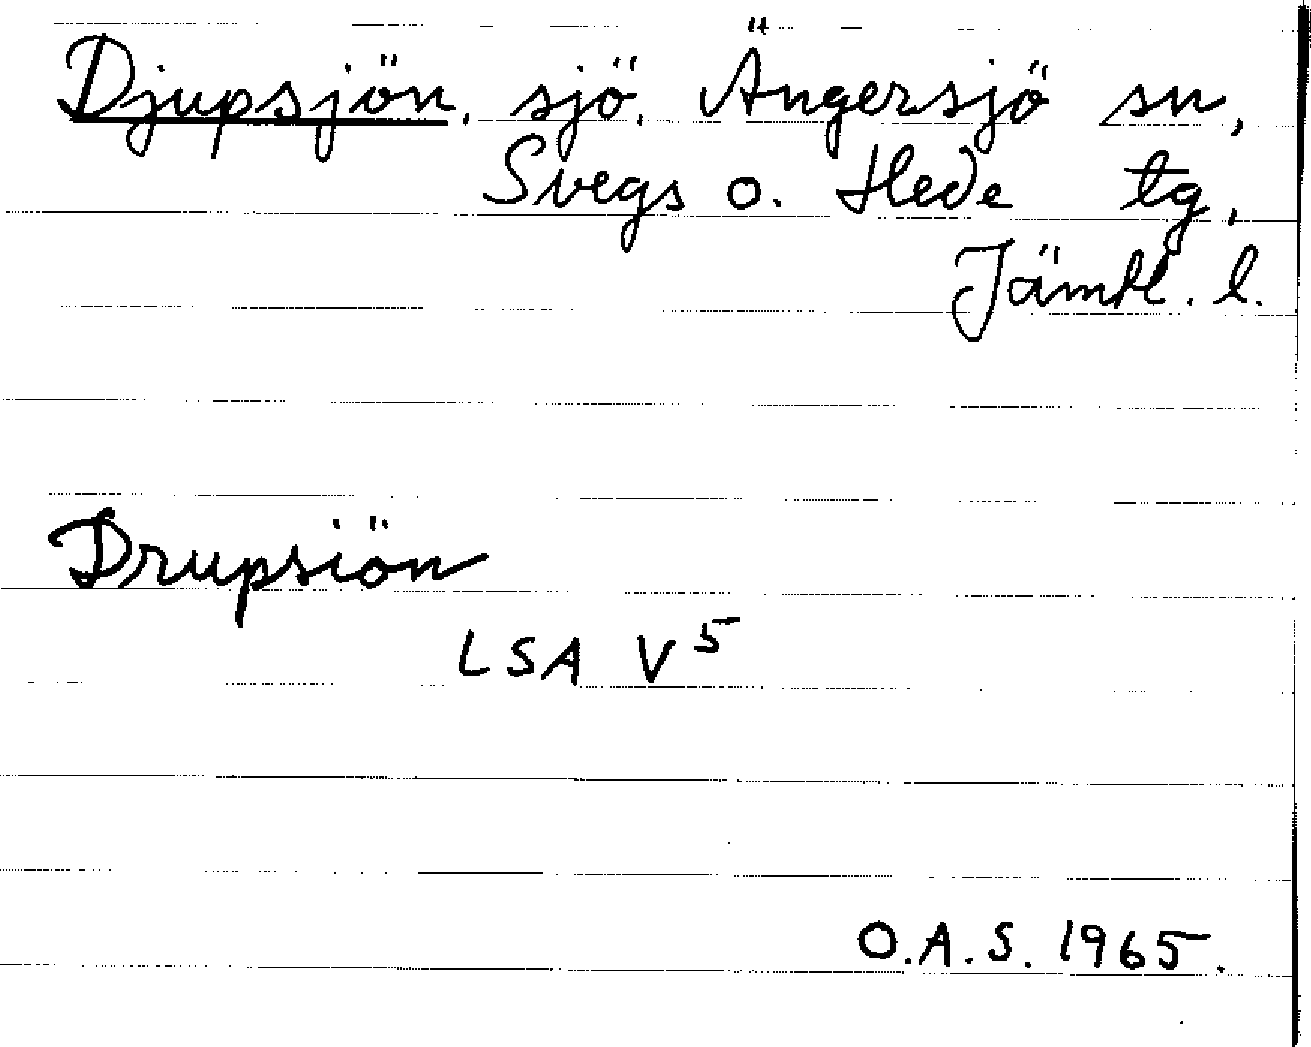 Djupsjön, sjö, Ängersjö sn,
Svegs o. Hede tg,
Jämtl. l.
Drupsiön
LSA V5
O.A.S. 1965.